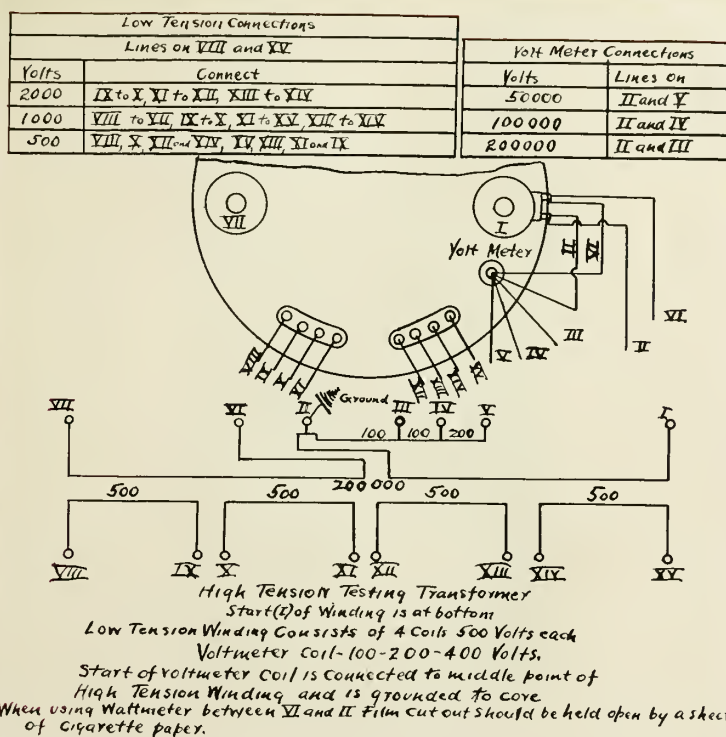 Low Tension Connections
Lines on VIII and XV
Volts Connect
2000 IX to X, XI to XII, XIII to XIV
1000 VIII to XII, IX to X, XI to XV, XIII to XIV
500 VIII, X, XII and XIV, XV, XIII, XI and IX
Volt Meter Connections
Volts Lines on
50000 II and V
100000 II and IV
200000 II and III
VII
I
Volt Meter
II
VI
VI
II
III
IV
V
VIII
IX
X
XI
XII
XIII
XIV
XV
VII
VI
II
Ground
III
IV
V
I
100 100 200
200000
500 500 500 500
VIII IX X XI XII XIII XIV XV
High Tension Testing Transformer
Start (I) of Winding is at bottom
Low Tension Winding Consists of 4 Coils 500 Volts each
Voltmeter Coil-100-200-400 Volts.
Start of voltmeter coil is connected to middle point of
High Tension Winding and is grounded to core
When using Wattmeter between VI and II Film cut out should be held open by a sheet
of cigarette paper.